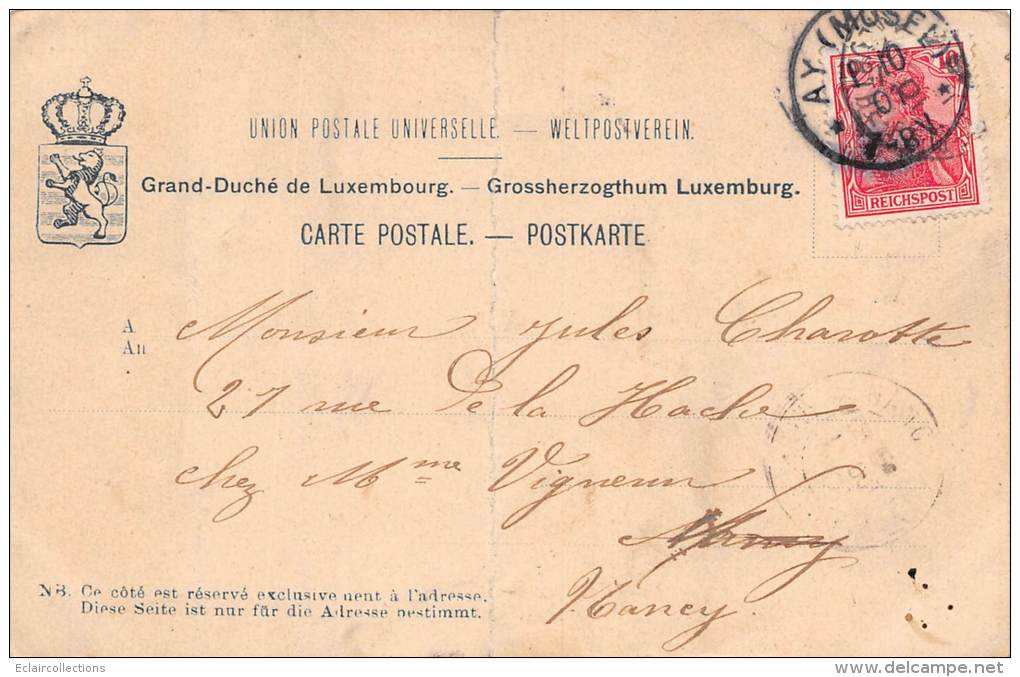 AY (MOSEL)
10
7-8 V.
REICHSPOST
UNION POSTALE UNIVERSELLE. — WELTPOSTVEREIN.
Grand-Duché de Luxembourg. — Grossherzogthum Luxemburg.
CARTE POSTALE. — POSTKARTE
A
An
Monsieur Jules Charotte
27 rue De la Hache
chez Mme Vigneron
Nancy
Nancy.
NB. Ce côté est réservé exclusivement à l'adresse.
Diese Seite ist nur für die Adresse bestimmt.
Eclaircollections
delcampe.net